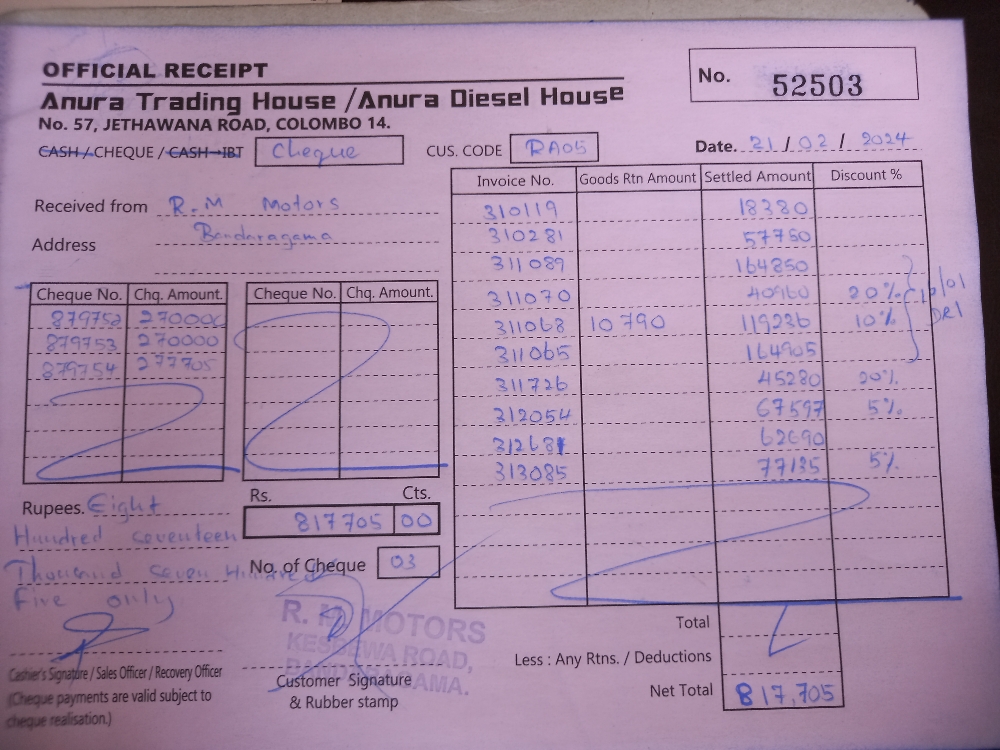 OFFICIAL RECEIPT
No. 52503
Anura Trading House /Anura Diesel House
No. 57, JETHAWANA ROAD, COLOMBO 14.
CASH / CHEQUE / CASH-IBT Cheque CUS. CODE RA05 Date. 21 / 02 / 2024
Received from R.M Motors
Address Bandaragama
Invoice No. Goods Rtn Amount Settled Amount Discount %
310119 18380
310281 57750
311089 164850
311070 40960 20%
311068 10790 119236 10%
311065 164905
311726 45280 20%
312054 67597 5%
312681 62690
313085 77135 5%
Cheque No. Chq. Amount. Cheque No. Chq. Amount.
879752 270000
879753 270000
879754 277705
Rupees. Eight
Hundred seventeen
Thousand seven Hundred
five only
Rs. Cts.
817705 00
No. of Cheque 03
R. M. MOTORS
KESBEWA ROAD,
BANDARAGAMA.
Cashier's Signature / Sales Officer / Recovery Officer
(Cheque payments are valid subject to
cheque realisation.)
Customer Signature
& Rubber stamp
Total
Less : Any Rtns. / Deductions
Net Total 817,705